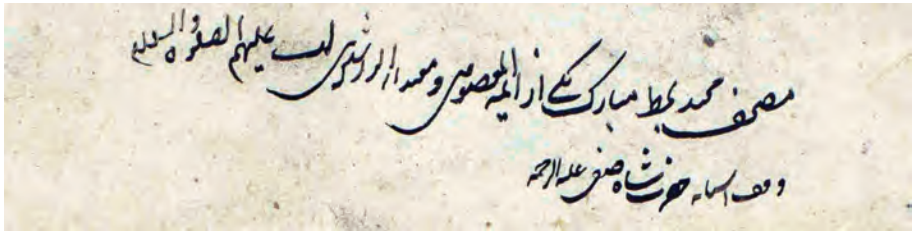 مصحف مجید بخط مبارک یکی از ائمه المعصومین و الراشدین است علیهم الصلوة والسلام
وقف آستانه حضرت شاه صفی علیه الرحمه